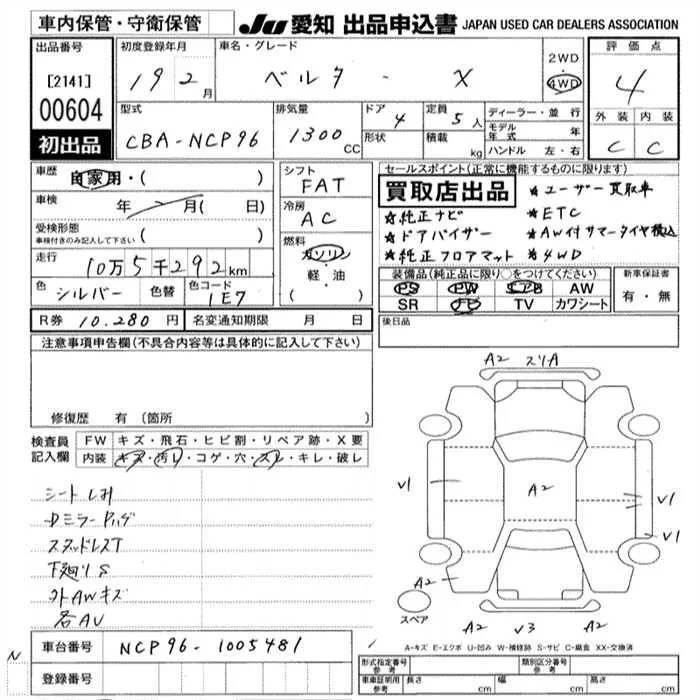 車内保管・守衛保管
JU 愛知 出品申込書 JAPAN USED CAR DEALERS ASSOCIATION
出品番号
[2141]
00604
初出品
初度登録年月
19 2月
車名・グレード
ベルタ - X
2WD
・
4WD
評価点
4
外装 内装
C C
型式
CBA-NCP96
排気量
1300 CC
ドア 4
形状
定員 5人
積載 kg
ディーラー・並行
モデル年式 年
ハンドル 左・右
車歴 自家用・( )
車検 年 月( 日)
受検形態
車検付きのみ記入して下さい ( )
走行 10万5千292km
色 シルバー 色替 色コード 1E7
R券 10.280円 名変通知期限 月 日
シフト
FAT
冷房
AC
燃料
ガソリン
軽・油
( )
セールスポイント(正常に機能するものに限ります)
買取店出品 ★ユーザー買取車
★純正ナビ ★ETC
★ドアバイザー ★AW付サマータイヤ積込
★純正フロアマット ★4WD
装備品(純正品に限り○をつけてください)
PS PW AW
SR ナビ TV カワシート
新車保証書
有・無
後日品
注意事項申告欄(不具合内容等は具体的に記入して下さい)
修復歴 有(箇所
検査員記入欄
FW キズ・飛石・ヒビ割・リペア跡・X要
内装 キズ・汚レ・コゲ・穴・スレ・キレ・破レ
シートしみ
スタッドレスT
下廻りS
外AWキズ
各AU
車台番号 NCP96-1005481
登録番号
N
A2 スリA
V1
A2
V1
V1
A2
スペア
A2 V3 A2
A-キズ E-エクボ U-凹み W-補修跡 S-サビ C-腐食 XX-交換済
形式指定番号参考
類別区分番号参考
車庫証明用参考 長さ cm 幅 cm 高さ cm